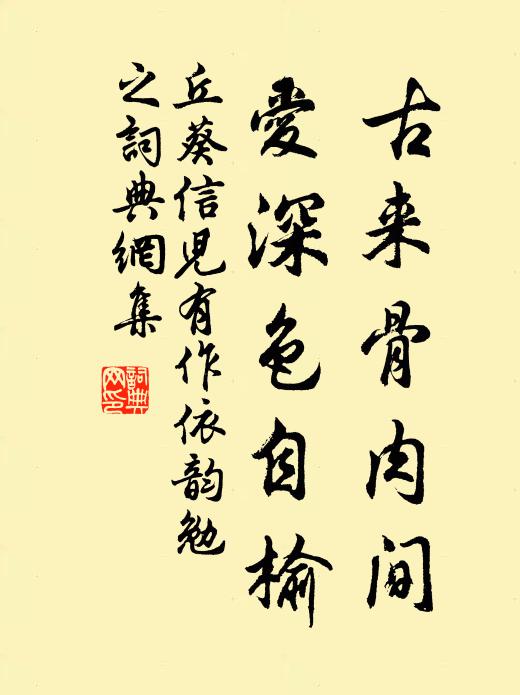 古来骨肉间
爱深色自榆
丘葵信児有作依韵勉
之詞典網集
詞典
网印